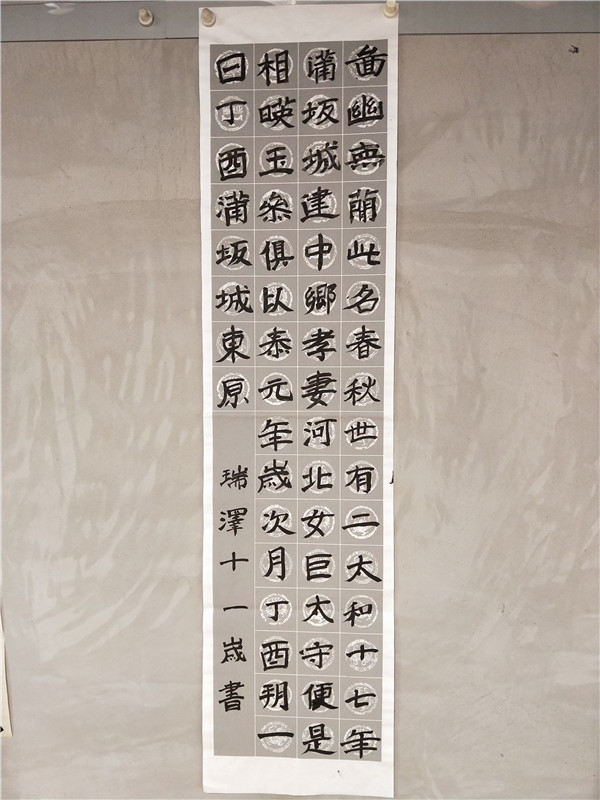 啚幽無蕳此名春秋世有二太和十七年
蒲坂城建中鄉孝妻河北女巨太守便是
相暎玉叅俱以泰元年歲次月丁酉朔一
日丁酉蒲坂城東原
瑞澤十一歲書